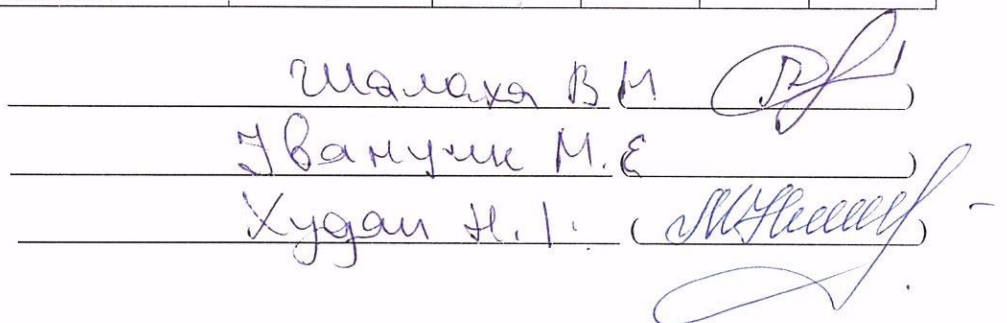 Шалаха В М ( )
Іванчик М. Є ( )
Худан Н. І. ( )